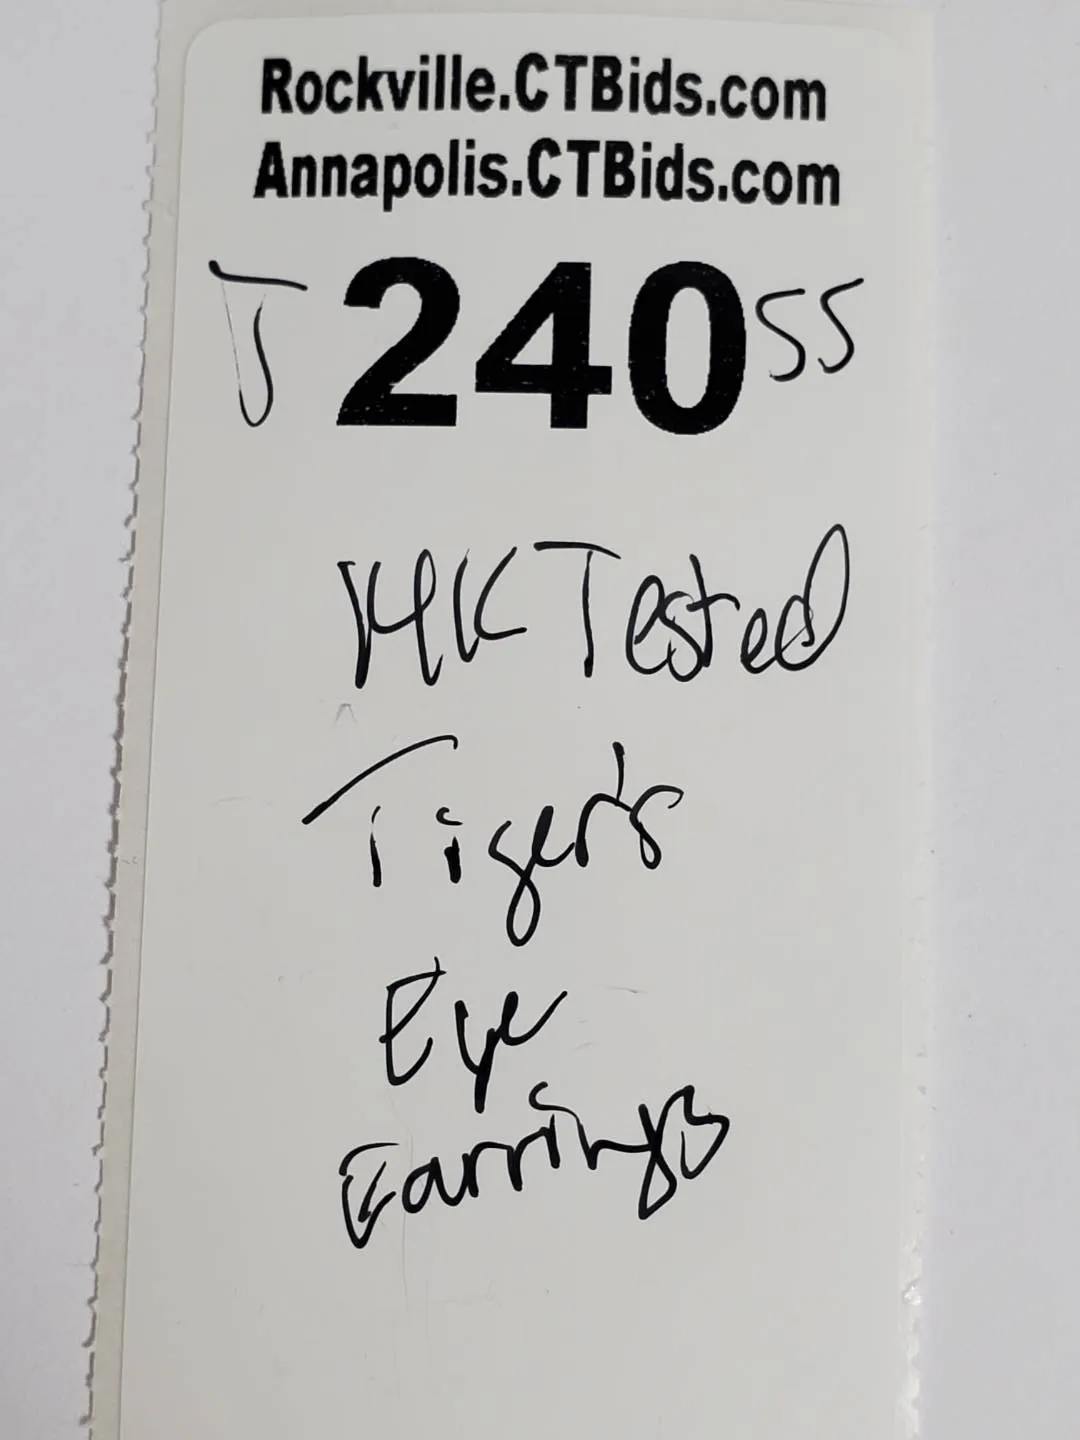 Rockville.CTBids.com
Annapolis.CTBids.com
J 240 SS
14K Tested
Tiger's
Eye
Earrings